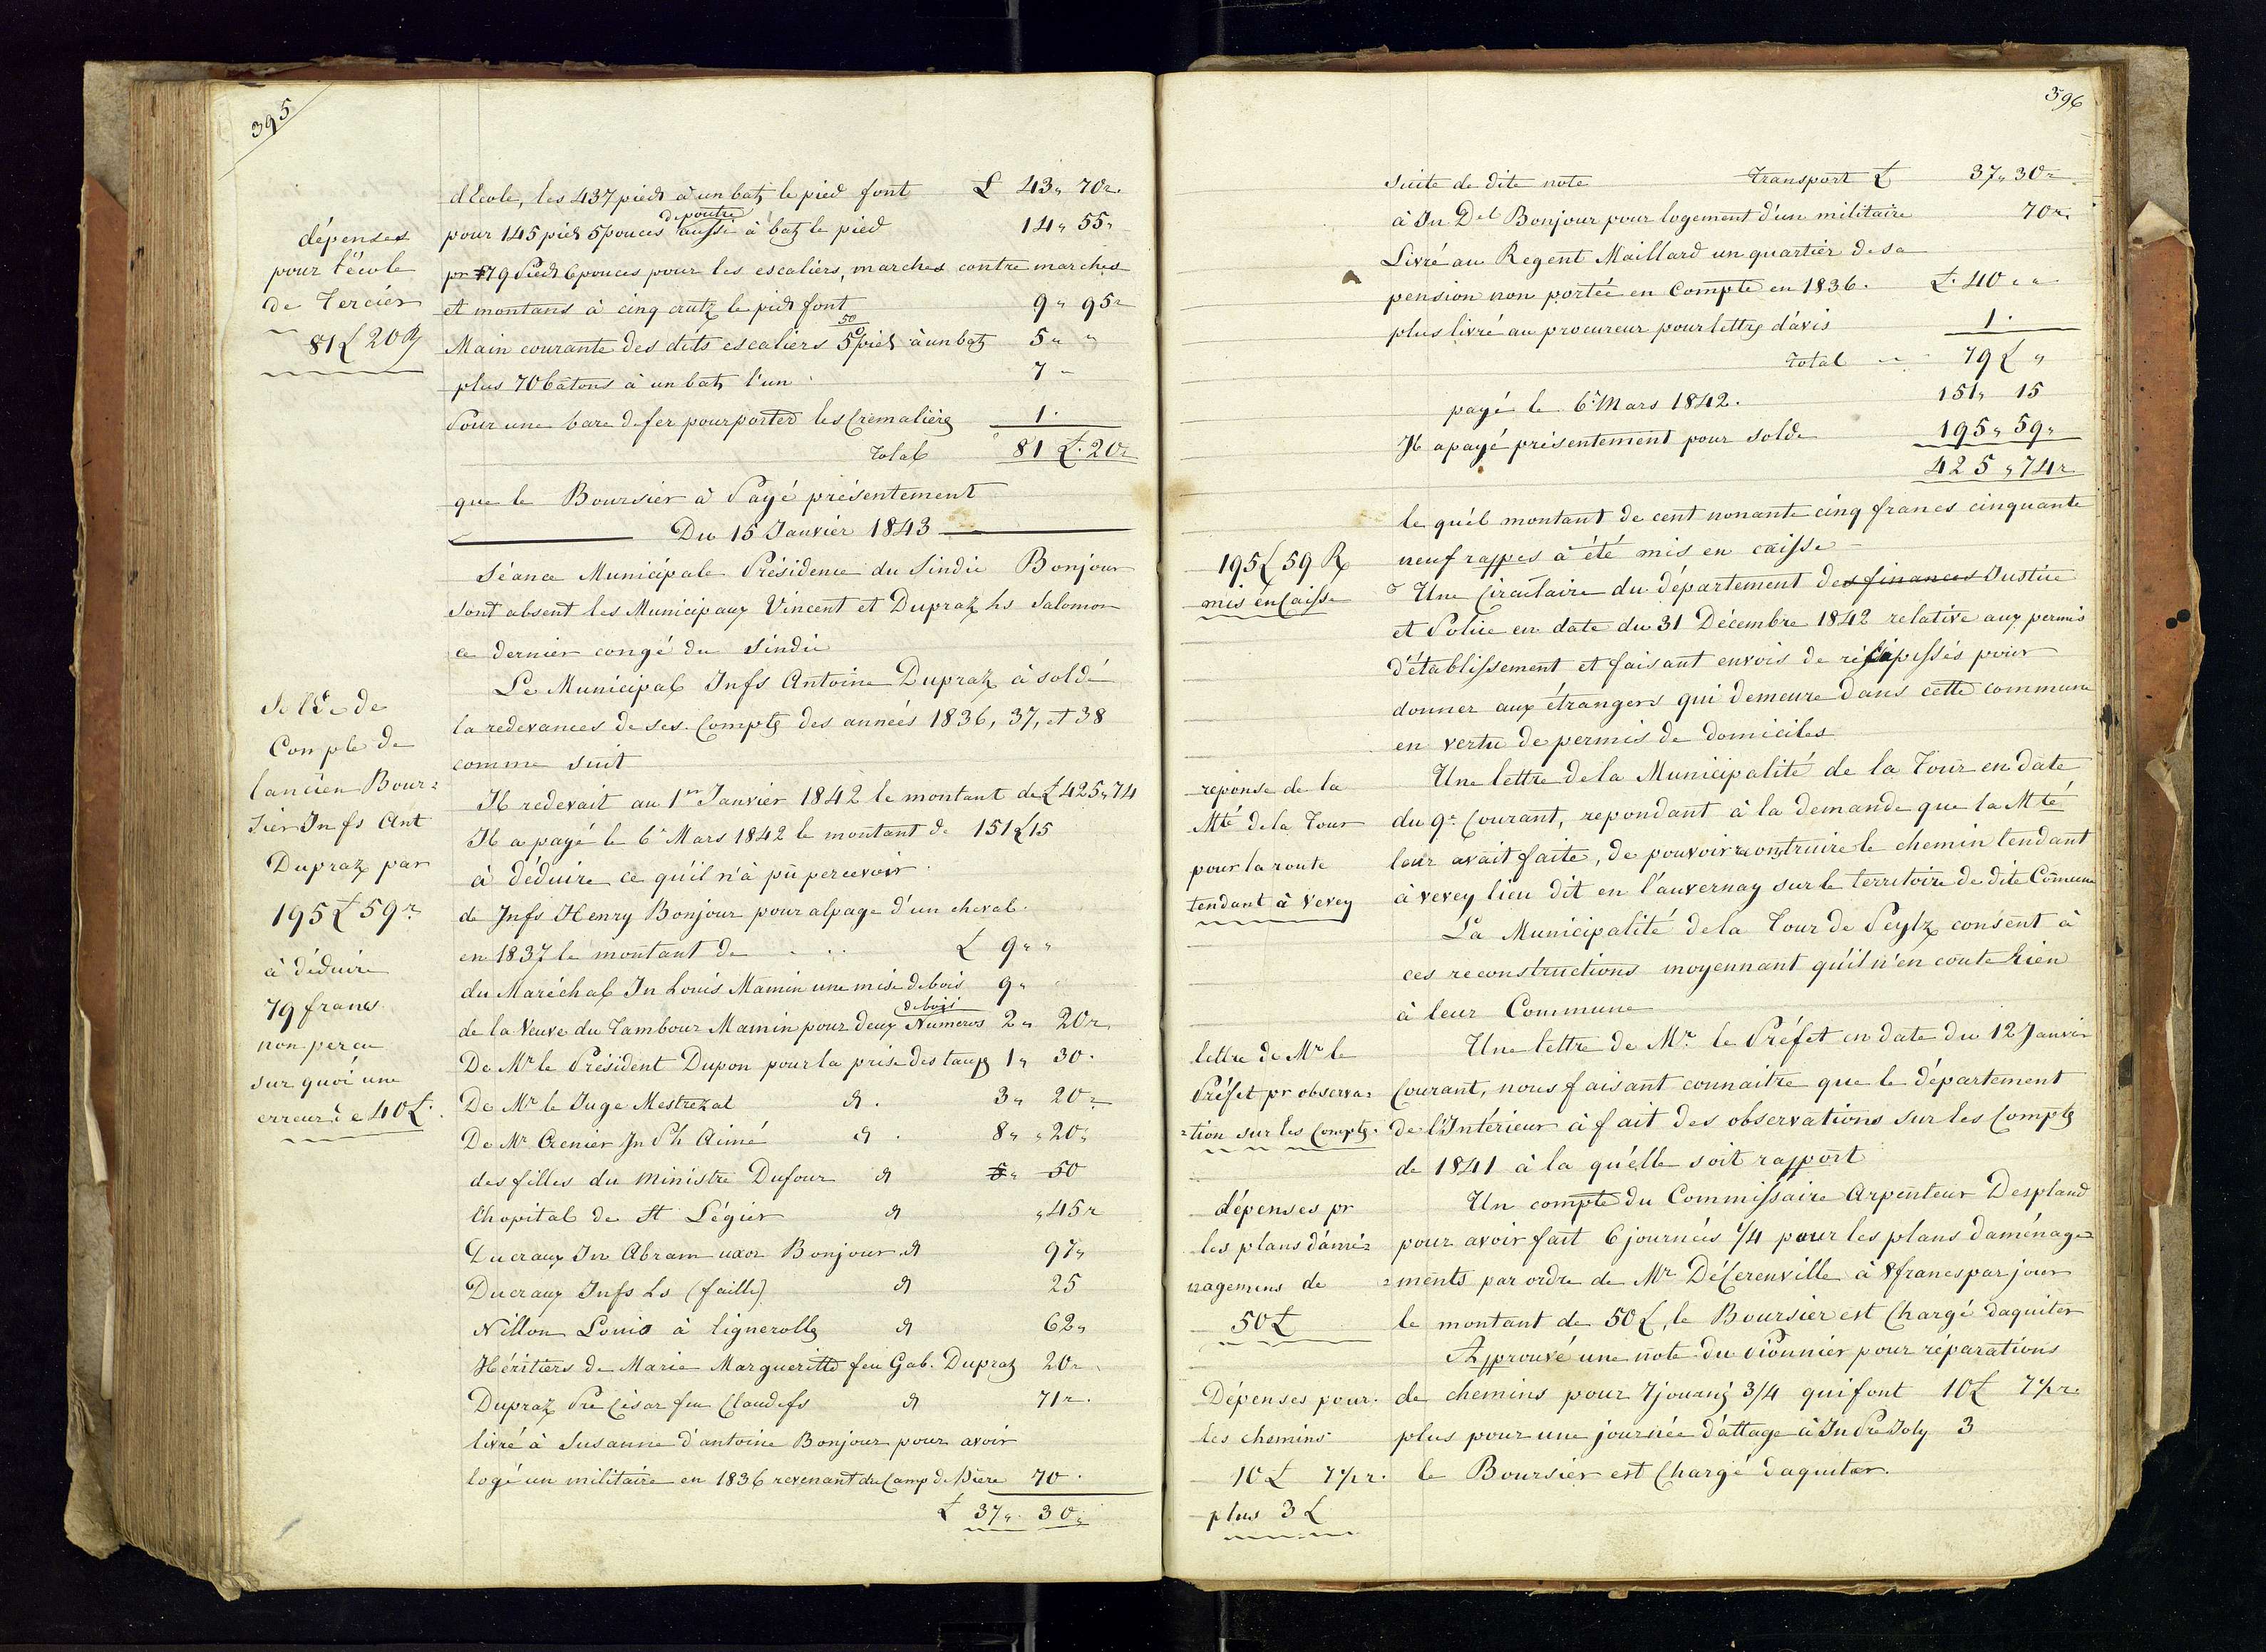 395
dépenses
pour l'école
de Tercier
81 £ 20 R
dEcole, les 437 pieds à un batz le pied font £ 43 " 70 r.
de poutre
pour 145 pieds 5 pouces aussi à batz le pied 14 " 55 "
pr 179 Pieds 6 pouces pour les escaliers, marches contre marches
et montans à cinq crutz le pied font 9 " 95 r
50
Main courante des dits escaliers pieds à un batz 5 " "
plus 70 bâtons à un batz l'un 7 "
Pour une bare de fer pour porter les Cremalières 1 .
Total 81 £. 20 r
que le Boursier à Payé présentement
Du 15 Janvier 1843
Séance Municipale Présidence du Sindic Bonjour
sont absent les Municipaux Vincent et Dupraz hs Salomon
ce dernier congé du Sindic
Solde de
Compte de
lancien Bour=
sier Jnfs Ant
Dupraz par
195 £ 59 r
à déduire
79 francs
non percu
sur quoi une
erreur de 40 £.
Le Municipal Jnfs Antoine Dupraz à soldé
la redevances de ses Comptes des années 1836, 37, et 38
comme suit
Il redevait au 1er Janvier 1842 le montant de £ 425 " 74
Il a payé le 6e Mars 1842 le montant de 151 £ 15
à déduire ce qu'il n'à pû percevoir
de Jnfs Henry Bonjour pour alpage d'un cheval.
en 1837 le montant de . . . £ 9 " "
du Maréchal Jn Louis Mamin une mise de bois 9 "
de bois
de la Veuve du Tambour Mamin pour deux Numéros 2 " 20 r
De Mr le Président Dupon pour la prise des taupes 1 " 30 .
De Mr le Juge Mestrezat d. 3 " 20 r
De Mr Crenier Jn Ph Aimé d. 8 " 20 "
des filles du Ministre Dufour d 5 " 50
lhopital de St Légier d " 45 r
Ducraux Jn Abram uxor Bonjour d 97 "
Ducraux Jnfs Ls (faille) d 25
Nillon Louis à lignerolles d 62 "
Héritiers de Marie Margueritte feu Gab. Dupraz 20 r
Dupraz Pre César feu Claudefs d 71 r.
livré à Susanne d'antoine Bonjour pour avoir
logé un militaire en 1836 revenant du Camp de Bière 70 .
£ 37 " 30 "
396
Suite de dite note Transport £ 37 " 30 r
à Jn Del Bonjour pour logement d'un militaire 70 r.
Livré au Regent Maillard un quartier de sa
pension non portée en Compte en 1836. £. 40 " "
plus livré au procureur pour lettres d'avis 1 .
Total 79 £ "
payé le 6e Mars 1842. 151 " 15
Il a payé présentement pour solde 195 " 59 "
425 " 74 r
195 £ 59 R
mis en Caisse
le quel montant de cent nonante cinq francs cinquante
neuf rappes à été mis en caisse
Une Circulaire du département des finances Justice
et Police en date du 31 Décembre 1842 relative aux permis
d'établissement et faisant envois de récépissés pour
donner aux étrangers qui demeure dans cette commune
en vertu de permis de domiciles
réponse de la
Mté de la Tour
pour la route
tendant à Vevey
Une lettre de la Municipalité de la Tour en date
du 9e Courant, repondant à la demande que la Mté
leur avait faite, de pouvoir reconstruire le chemin tendant
à vevey lieu dit en l'auvernay sur le territoire de dite Comune
La Municipalité de la Tour de Peylz consent à
ces reconstructions moyennant qu'il n'en coute Rien
à leur Commune
lettre de Mr le
Préfet pr observa=
=tion sur les Comptes.
Une lettre de Mr. le Préfet en date du 12 Janvier
Courant, nous faisant connaitre que le département
de l'Intérieur à fait des observations sur les Comptes
de 1841 à la qu'elle soit rapport
dépenses pr
les plans d'amé=
nagemens de
50 £
Un compte du Commissaire Arpenteur Despland
pour avoir fait 6 journées 1/4 pour les plans daménage=
=ments par ordre de Mr DeCerenville à 8 francs par jour
le montant de 50 £, le Boursier est Chargé daquiter
Dépenses pour.
les chemins
10 £ 7 1/2 r.
plus 3 £
Approuvé une note du Pionnier pour réparations
de chemins pour 7 journées 3/4 qui font 10 £ 7 1/2 r.
plus pour une journée d'attage à Jn Pre Joly 3
le Boursier est Chargé daquiter.